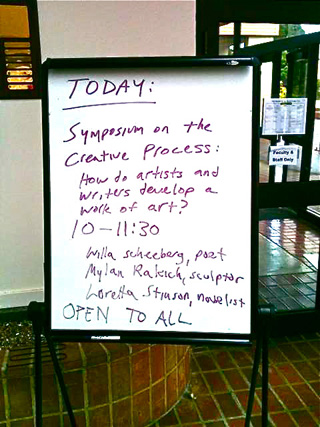 TODAY:
Symposium on the
Creative Process:
How do artists and
writers develop a
work of art?
10-11:30
Willa Scheeberg, poet
Mylan Rakich, sculptor
Loretta Stinson, novelist
OPEN TO ALL
Faculty &
Staff Only